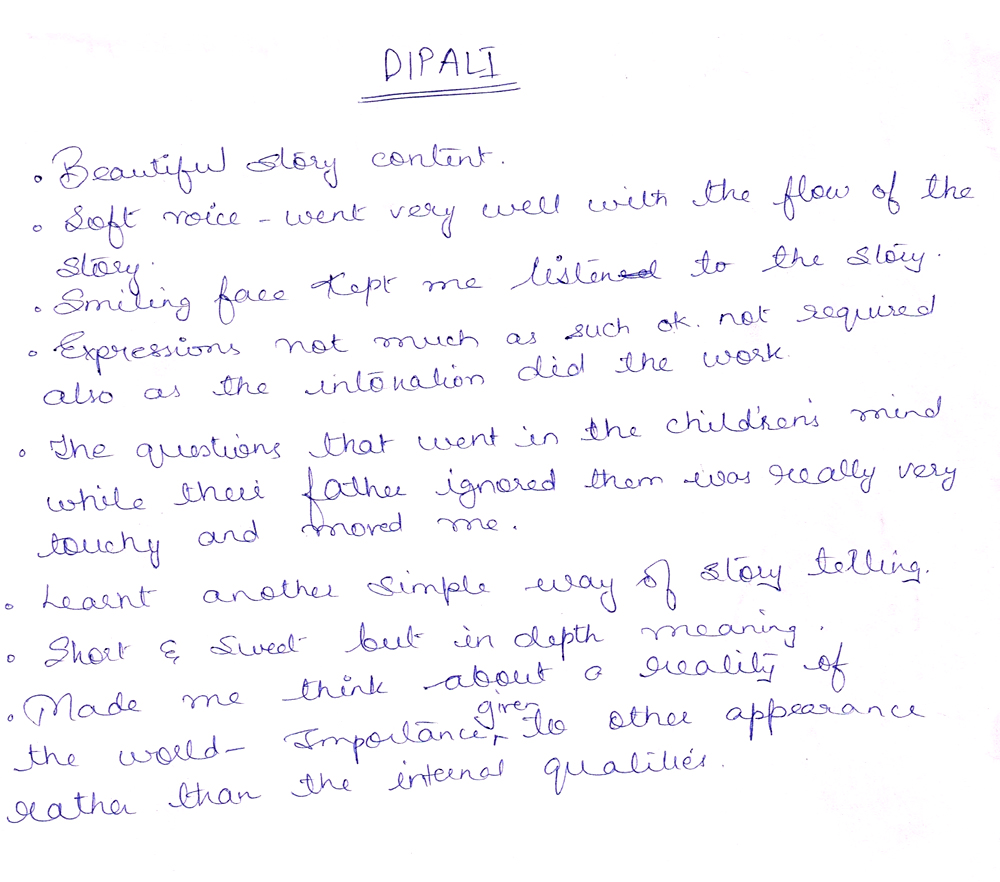 DIPALI
• Beautiful story content.
• Soft voice - went very well with the flow of the
story.
• Smiling face kept me listened to the story.
• Expressions not much as such ok. not required
also as the intonation did the work.
• The questions that went in the children's mind
while their father ignored them was really very
touchy and moved me.
• Learnt another simple way of story telling.
• Short & Sweet but in depth meaning.
• Made me think about a reality of
the world- Importance given to other appearance
rather than the internal qualities.